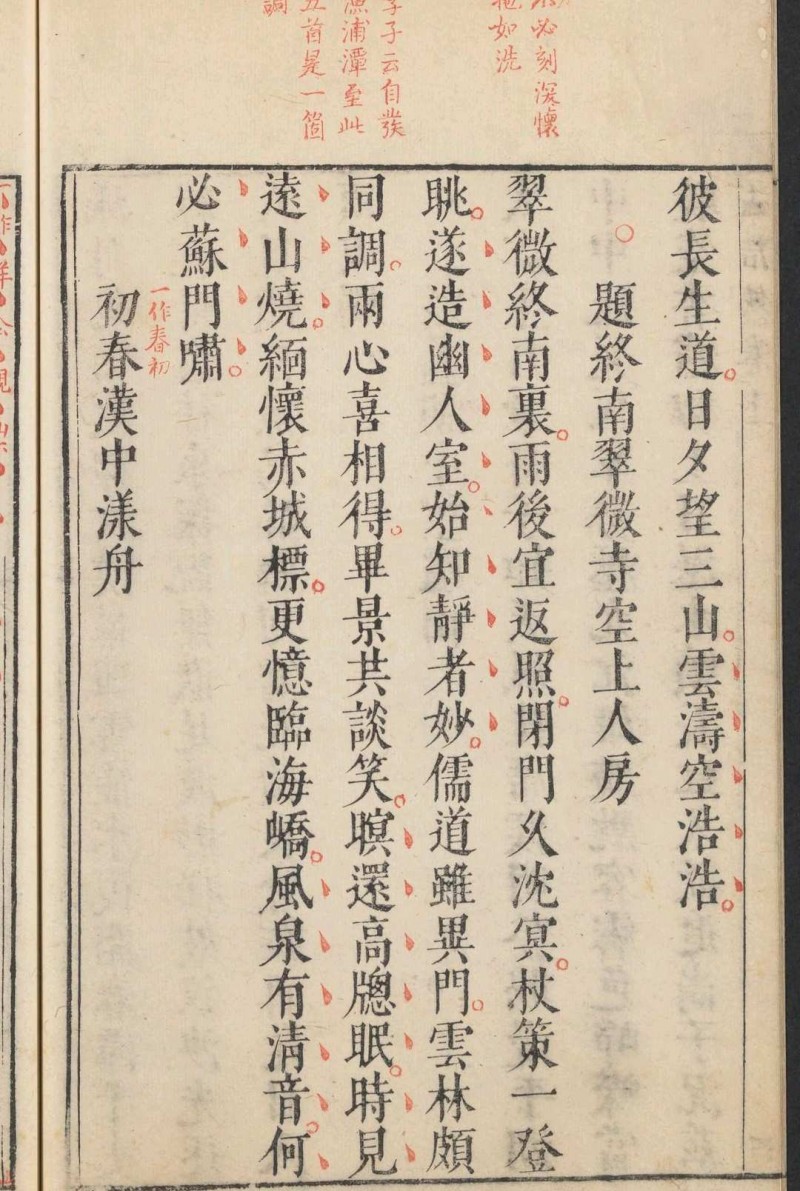 必刻深懷
如洗
子云自發
漁浦潭至此
五首是一箇
調
彼長生道日夕望三山雲濤空浩浩
題終南翠微寺空上人房
翠微終南裏雨後宜返照閉門久沈冥杖策一登
眺遂造幽人室始知靜者妙儒道雖異門雲林頗
同調兩心喜相得畢景共談笑暝還高牎眠時見
遠山燒緬懷赤城標更憶臨海嶠風泉有清音何
必蘇門嘯
一作春初
初春漢中漾舟